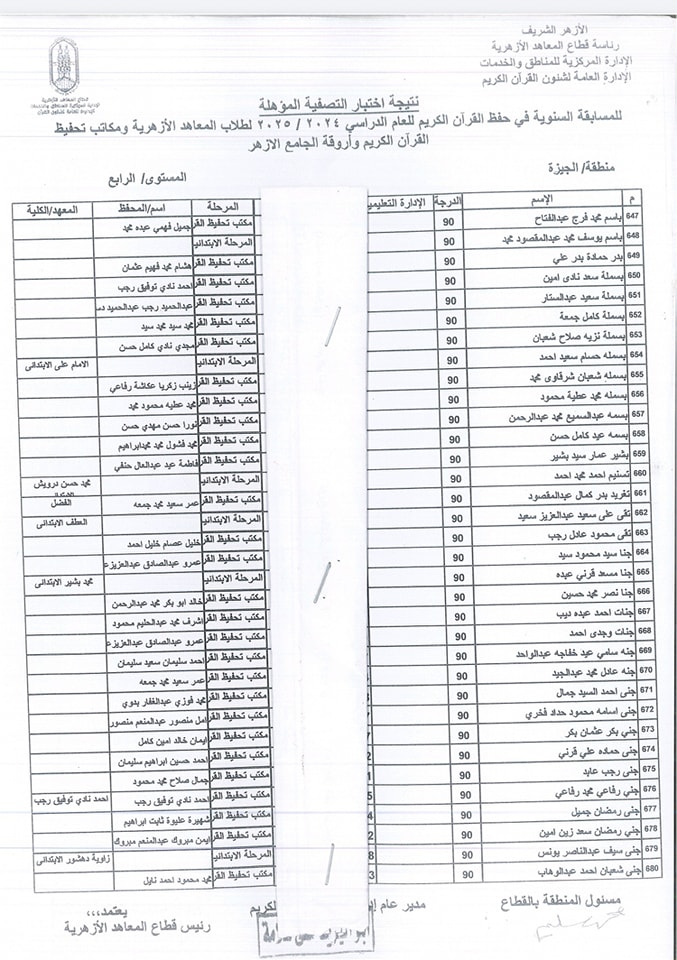 الأزهر الشريف
رئاسة قطاع المعاهد الأزهرية
الإدارة المركزية للمناطق والخدمات
الإدارة العامة لشئون القرآن الكريم
قطاع المعاهد الأزهرية
نتيجة اختبار التصفية المؤهلة
للمسابقة السنوية في حفظ القرآن الكريم للعام الدراسي ٢٠٢٤ / ٢٠٢٥ لطلاب المعاهد الأزهرية ومكاتب تحفيظ
القرآن الكريم وأروقة الجامع الازهر
منطقة/ الجيزة
المستوى/ الرابع
م الإسم الدرجة الإدارة التعليمي المرحلة اسم/المحفظ المعهد/الكلية
647 باسم محمد فرج عبدالفتاح 90 مكتب تحفيظ القر جميل فهمي عبده محمد
648 باسم يوسف محمد عبدالمقصود محمد 90 المرحلة الابتدائي
649 بدر حمادة بدر علي 90 مكتب تحفيظ القر هشام محمد فهيم عثمان
650 بسملة سعد نادى امين 90 مكتب تحفيظ القر احمد نادي توفيق رجب
651 بسملة سعيد عبدالستار 90 مكتب تحفيظ القر عبدالحميد رجب عبدالحميد دس
652 بسملة كامل جمعة 90 مكتب تحفيظ القر محمد سيد محمد سيد
653 بسملة نزيه صلاح شعبان 90 مكتب تحفيظ القر مجدي نادي كامل حسن
654 بسمله حسام سعيد احمد 90 المرحلة الابتدائي الامام على الابتدائى
655 بسمله شعبان شرقاوى محمد 90 مكتب تحفيظ القر زينب زكريا عكاشة رفاعي
656 بسمله محمد عطية محمود 90 مكتب تحفيظ القر محمد عطيه محمود محمد
657 بسمه عبدالسميع محمد عبدالرحمن 90 مكتب تحفيظ القر نورا حسن مهدي حسن
658 بسمه عيد كامل حسن 90 مكتب تحفيظ القر محمد فشول محمد محمدابراهيم
659 بشير عمار سيد بشير 90 مكتب تحفيظ القر فاطمة عيد عبدالعال حنفي
660 تسنيم احمد محمد احمد 90 المرحلة الابتدائي محمد حسن درويش
661 تغريد بدر كمال عبدالمقصود 90 مكتب تحفيظ القر عمر سعيد محمد جمعه الفضل
662 تقى على سعيد عبدالعزيز سعيد 90 المرحلة الابتدائي العطف الابتدائى
663 تقى محمود عادل رجب 90 مكتب تحفيظ القر خليل عصام خليل احمد
664 جنا سيد محمود سيد 90 مكتب تحفيظ القر عمرو عبدالصادق عبدالعزيز ع
665 جنا مسعد قرني عبده 90 المرحلة الابتدائي محمد بشير الابتدائى
666 جنا نصر محمد حسين 90 مكتب تحفيظ القر خالد ابو بكر محمد عبدالرحمن
667 جنات احمد عبده ديب 90 مكتب تحفيظ القر اشرف محمد عبدالحليم محمود
668 جنات وجدى احمد 90 مكتب تحفيظ القر عمرو عبدالصادق عبدالعزيز ع
669 جنه سامي عيد خفاجه عبدالواحد 90 مكتب تحفيظ القر احمد سليمان سعيد سليمان
670 جنه عادل محمد عبدالجيد 90 مكتب تحفيظ القر عمر سعيد محمد جمعه
671 جنى احمد السيد جمال 90 مكتب تحفيظ القر محمد فوزي عبدالغفار بدوي
672 جنى اسامه محمود حداد فخري 90 مكتب تحفيظ القر امل منصور عبدالمنعم منصور
673 جني بكر عثمان بكر 90 مكتب تحفيظ القر ايمان خالد امين كامل
674 جنى حماده علي قرني 90 2 مكتب تحفيظ القر احمد حسين ابراهيم سليمان
675 جنى رجب عابد 90 1 مكتب تحفيظ القر جمال صلاح محمد محمود
676 جني رفاعي محمد رفاعي 90 5 مكتب تحفيظ القر احمد نادي توفيق رجب احمد نادي توفيق رجب
677 جنى رمضان جميل 90 4 مكتب تحفيظ القر شهيرة عليوة ثابت ابراهيم
678 جني رمضان سعد زين امين 90 2 مكتب تحفيظ القر ايمن مبروك عبدالمنعم مبروك
679 جنى سيف عبدالناصر يونس 90 8 المرحلة الابتدائي زاوية دهشور الابتدائى
680 جنى شعبان احمد عبدالوهاب 90 3 مكتب تحفيظ القر محمد محمود احمد نايل
مسئول المنطقة بالقطاع
مدير عام إ الكريم
يعتمد،،،
رئيس قطاع المعاهد الأزهرية